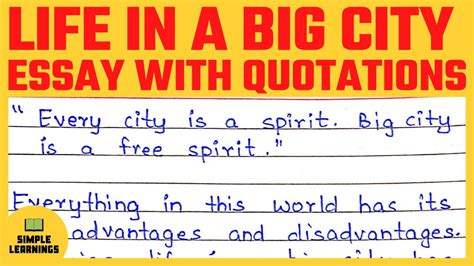 LIFE IN A BIG CITY
ESSAY WITH QUOTATIONS
" Every city is a spirit. Big city
is a free spirit."
Everything in this world has its
advantages and disadvantages.
SIMPLE
LEARNINGS